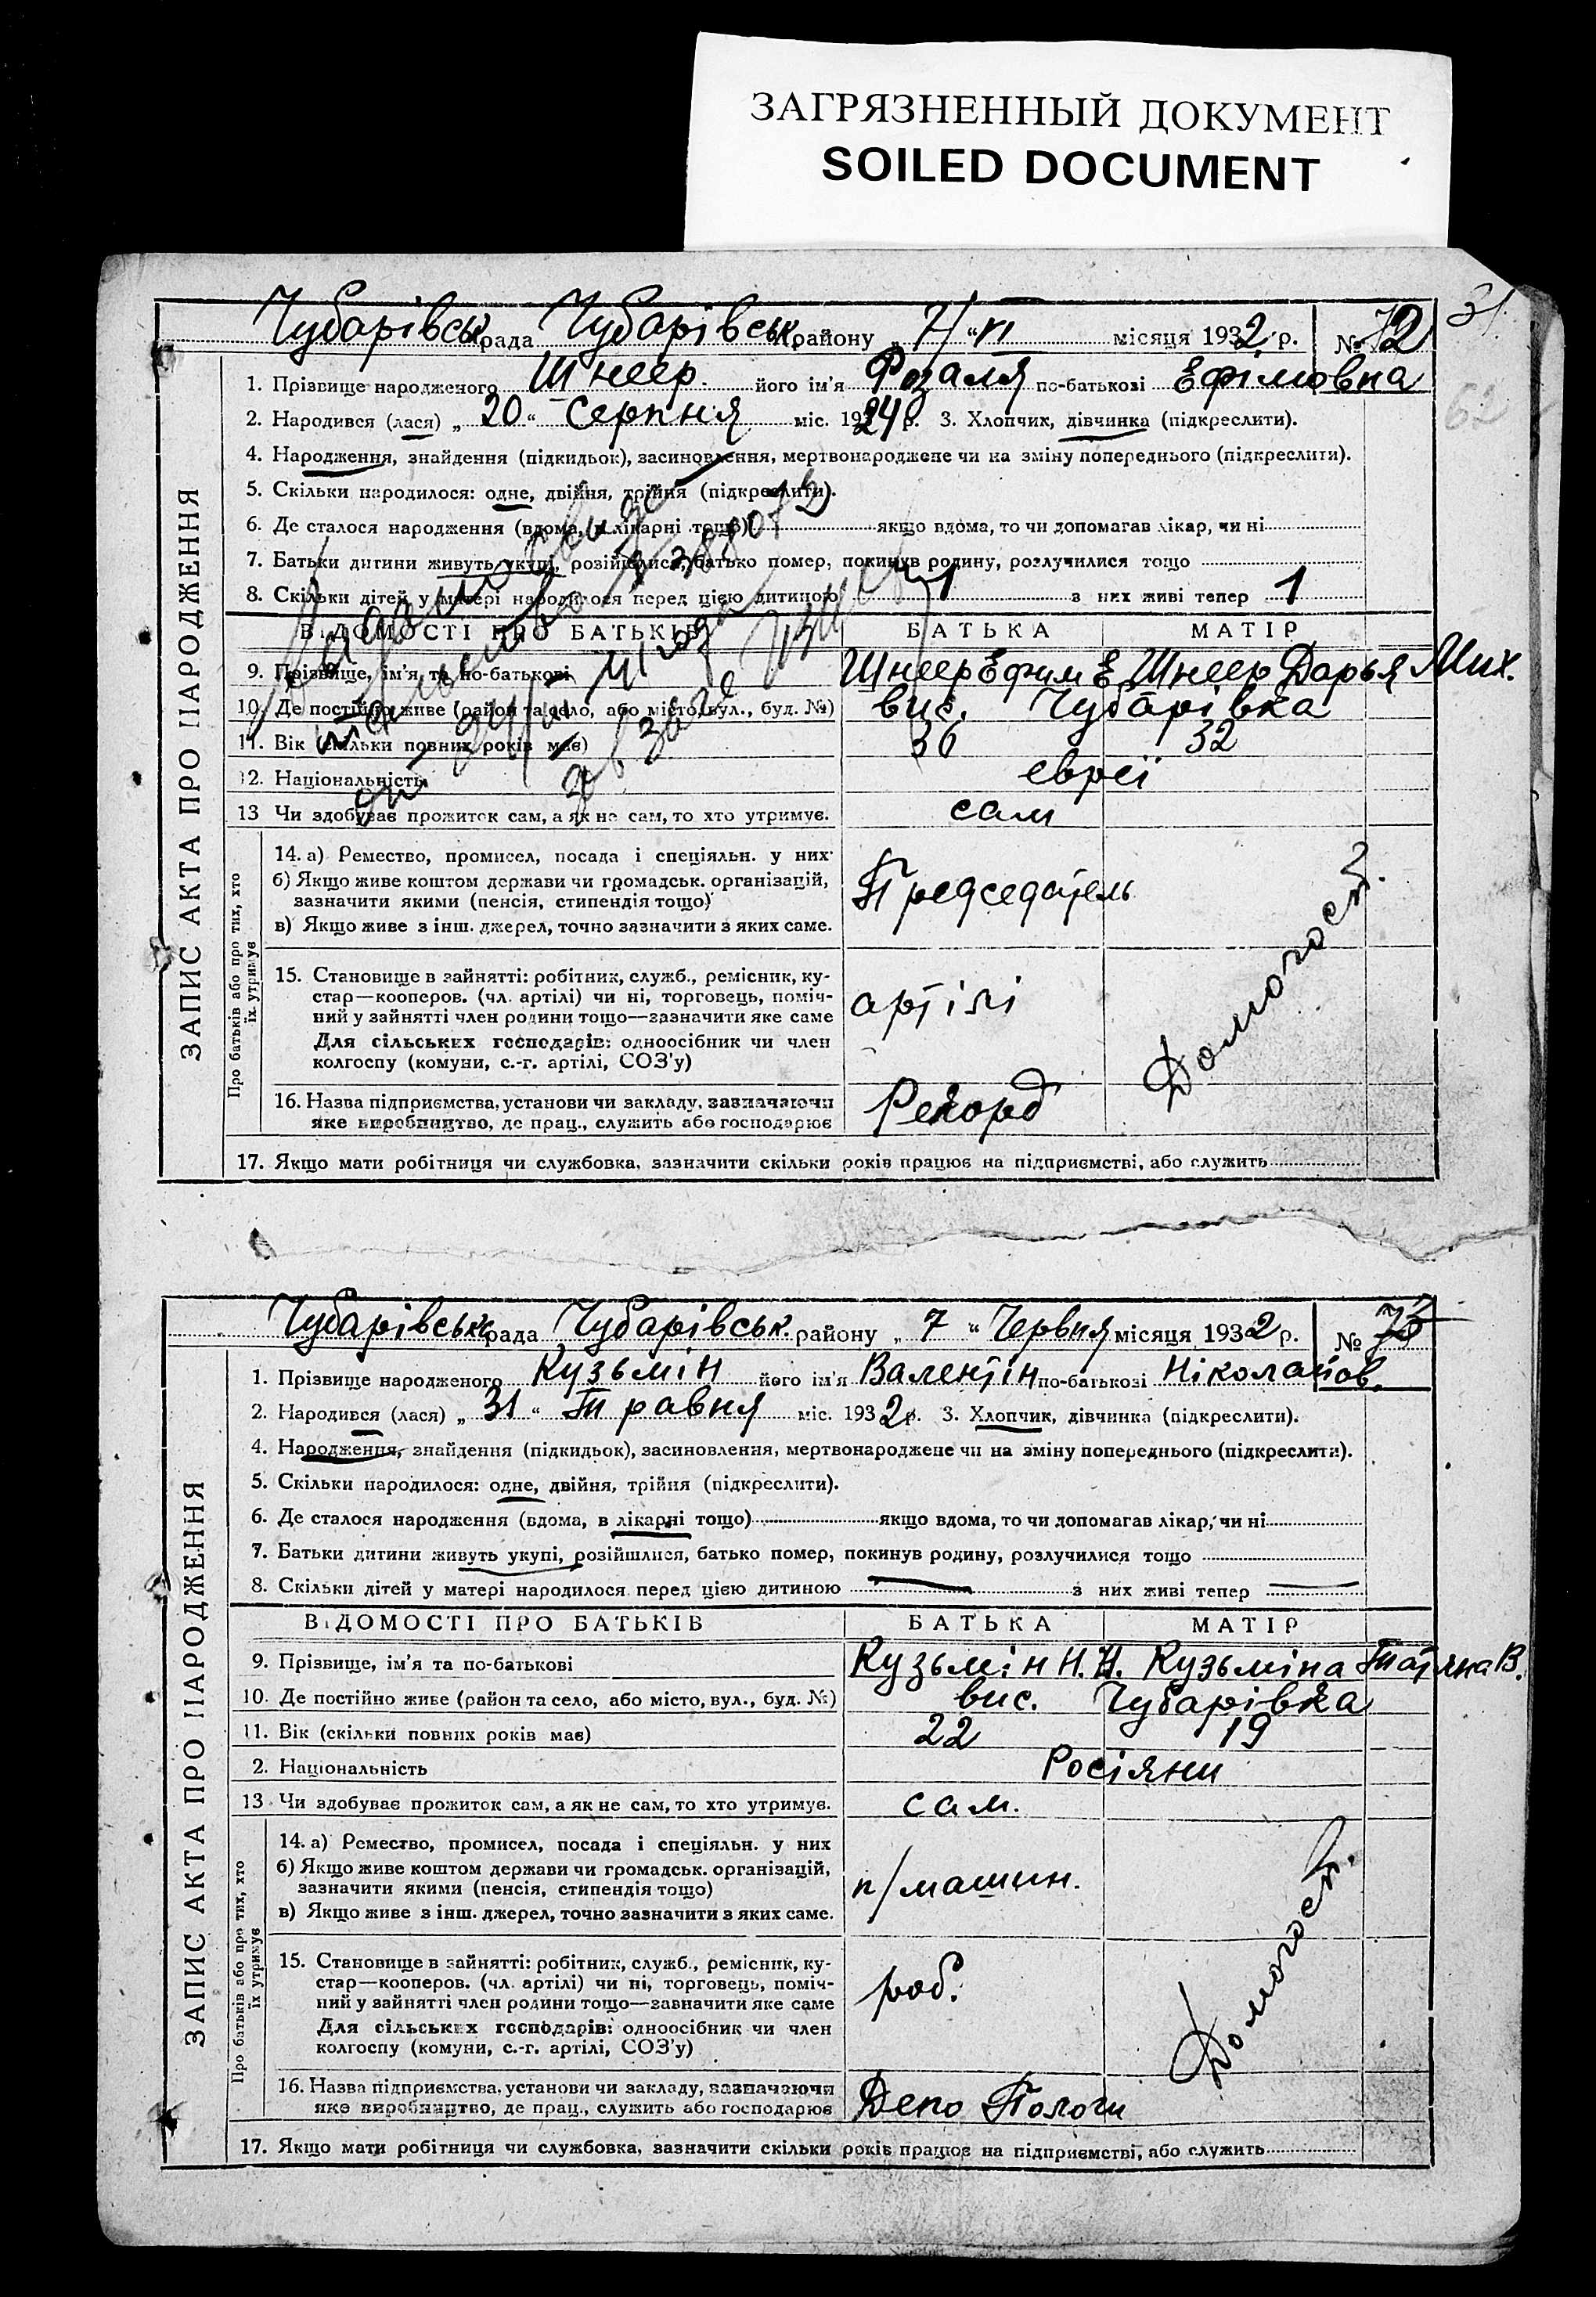 ЗАГРЯЗНЕННЫЙ ДОКУМЕНТ
SOILED DOCUMENT
31.
62
Чубарівськ рада Чубарівськ району „ 7/ “ VI місяця 1932 р. № 72
ЗАПИС АКТА ПРО НАРОДЖЕННЯ
1. Прізвище народженого Шнеер. його ім'я Розаля по-батькові Ефімовна
2. Народився (лася) „ 20 “ Серпня міс. 1924 р. 3. Хлопчик, дівчинка (підкреслити).
4. Народження, знайдення (підкидьок), засиновлення, мертвонароджене чи на зміну попереднього (підкреслити).
5. Скільки народилося: одне, двійня, трійня (підкреслити).
6. Де сталося народження (вдома, в лікарні тощо) якщо вдома, то чи допомагав лікар, чи ні
7. Батьки дитини живуть укупі, розійшлися, батько помер, покинув родину, розлучилися тощо
8. Скільки дітей у матері народилося перед цією дитиною 1 з них живі тепер 1
ВІДОМОСТІ ПРО БАТЬКІВ БАТЬКА МАТІР
9. Прізвище, ім'я та по-батькові Шнеер Ефим Е. Шнеер Дарья Мих.
10. Де постійно живе (район та село, або місто, вул., буд. №) вис. Чубарівка
11. Вік (скільки повних років має) 36 32
12. Національність евреї
13 Чи здобуває прожиток сам, а як не сам, то хто утримує. сам
Про батьків або про тих, хто їх утримує
14. а) Ремество, промисел, посада і спеціяльн. у них
б) Якщо живе коштом держави чи громадськ. організацій,
зазначити якими (пенсія, стипендія тощо)
в) Якщо живе з інш. джерел, точно зазначити з яких саме.
Председатель
Домогосп.
15. Становище в зайнятті: робітник, служб., ремісник, ку-
стар—кооперов. (чл. артілі) чи ні, торговець, поміч-
ний у зайнятті член родини тощо—зазначити яке саме
Для сільських господарів: одноосібник чи член
колгоспу (комуни, с.-г. артілі, СОЗ'у)
артілі
16. Назва підприємства, установи чи закладу, зазначаючи
яке виробництво, де прац., служить або господарює
Рекорд
17. Якщо мати робітниця чи службовка, зазначити скільки років працює на підприємстві, або служить
Чубарівськ рада Чубарівськ. району „ 7 “ Червня місяця 1932 р. № 73
ЗАПИС АКТА ПРО НАРОДЖЕННЯ
1. Прізвище народженого Кузьмін його ім'я Валентін по-батькові Ніколайов.
2. Народився (лася) „ 31 “ Травня міс. 1932 р. 3. Хлопчик, дівчинка (підкреслити).
4. Народження, знайдення (підкидьок), засиновлення, мертвонароджене чи на зміну попереднього (підкреслити).
5. Скільки народилося: одне, двійня, трійня (підкреслити).
6. Де сталося народження (вдома, в лікарні тощо) якщо вдома, то чи допомагав лікар, чи ні
7. Батьки дитини живуть укупі, розійшлися, батько помер, покинув родину, розлучилися тощо
8. Скільки дітей у матері народилося перед цією дитиною — з них живі тепер —
ВІДОМОСТІ ПРО БАТЬКІВ БАТЬКА МАТІР
9. Прізвище, ім'я та по-батькові Кузьмін Н. Н. Кузьміна Татяна В.
10. Де постійно живе (район та село, або місто, вул., буд. №) вис. Чубарівка
11. Вік (скільки повних років має) 22 19
2. Національність Росіяни
13 Чи здобуває прожиток сам, а як не сам, то хто утримує. сам.
Про батьків або про тих, хто їх утримує
14. а) Ремество, промисел, посада і спеціяльн. у них
б) Якщо живе коштом держави чи громадськ. організацій,
зазначити якими (пенсія, стипендія тощо)
в) Якщо живе з інш. джерел, точно зазначити з яких саме.
п/машин.
Домогосп.
15. Становище в зайнятті: робітник, служб., ремісник, ку-
стар—кооперов. (чл. артілі) чи ні, торговець, поміч-
ний у зайнятті член родини тощо—зазначити яке саме
Для сільських господарів: одноосібник чи член
колгоспу (комуни, с.-г. артілі, СОЗ'у)
роб.
16. Назва підприємства, установи чи закладу, зазначаючи
яке виробництво, де прац., служить або господарює
Депо Пологи
17. Якщо мати робітниця чи службовка, зазначити скільки років працює на підприємстві, або служить